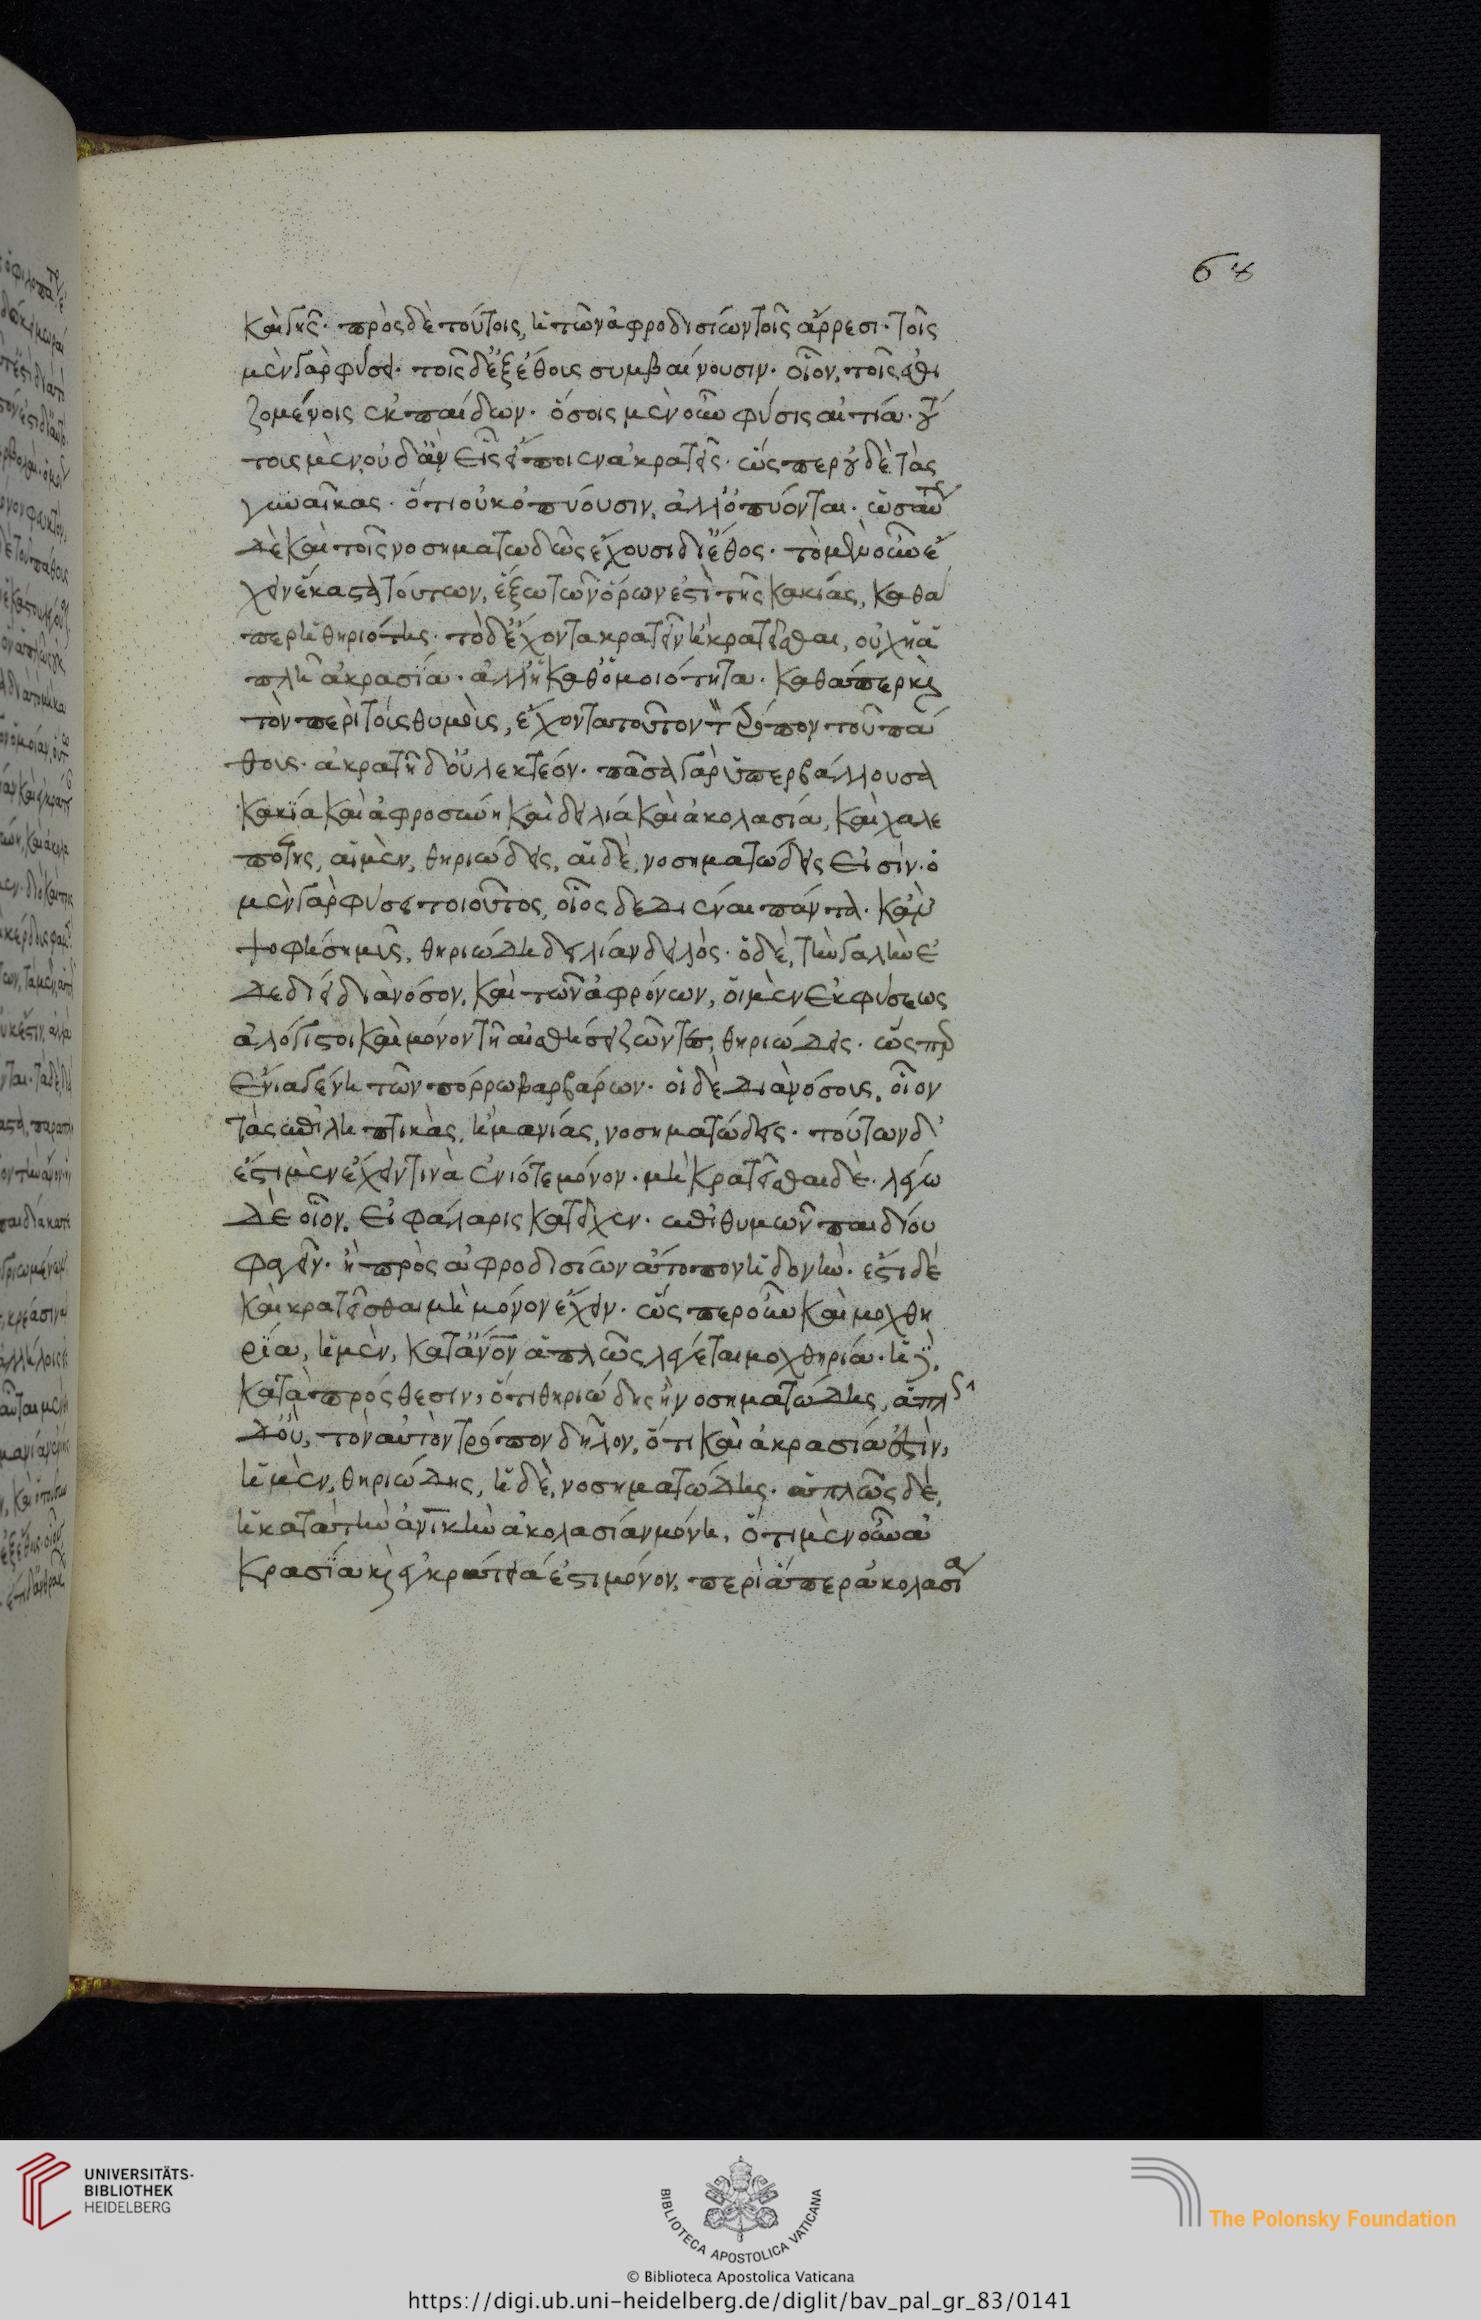 68
καὶ γῆς· πρὸς δὲ τούτοις, ἡ τῶν ἀφροδισίων τοῖς ἄρρεσι· τοῖς
μὲν γὰρ φύσει· τοῖς δ' ἐξ ἔθους συμβαίνουσιν· οἷον, τοῖς ἐθι
ζομένοις ἐκ παίδων· ὅσοις μὲν οὖν φύσις αἰτία· τού
τους μὲν, οὐδ' ἂν εἷς εἴποιεν ἀκρατεῖς· ὥσπερ οὐδὲ τὰς
γυναῖκας· ὅτι οὐκ ὀπύουσιν, ἀλλ' ὀπύονται· ὡσαύτως
δὲ καὶ τοῖς νοσηματωδῶς ἔχουσι δι' ἔθος· τὸ μὲν οὖν ἔ
χειν ἕκαστα τούτων, ἔξω τῶν ὅρων ἐστὶ τῆς κακίας, καθά
περ ἡ θηριότης· τὸ δ' ἔχοντα κρατεῖν ἢ κρατεῖσθαι, οὐχ ἡ ἁ
πλῆ ἀκρασία· ἀλλ' ἡ καθ' ὁμοιότητα· καθάπερ καὶ
τὸν περὶ τοὺς θυμοὺς, ἔχοντα τοῦτον τὸν τρόπον τοῦ πά
θους· ἀκρατῆ δ' οὐ λεκτέον· πᾶσα γὰρ ὑπερβάλλουσα
κακία καὶ ἀφροσύνη καὶ δειλιά καὶ ἀκολασία, καὶ χαλε
πότης, αἱ μὲν, θηριώδεις, αἱ δὲ, νοσηματώδεις εἰσίν· ὁ
μὲν γὰρ φύσει τοιοῦτος, οἷος δεδιέναι πάντα· κἂν
ψοφήσῃ μῦς, θηριώδη δειλίαν δειλός· ὁ δὲ, τὴν γαλῆν ἐ
δεδίει διὰ νόσον, καὶ τῶν ἀφρόνων, οἱ μὲν ἐκ φύσεως
ἀλόγιστοι καὶ μόνον τῇ αἰσθήσει ζῶντες, θηριώδεις· ὥσπερ
ἔνια γένη τῶν πόρρω βαρβάρων· οἱ δὲ διὰ νόσους, οἷον
τὰς ἐπιληπτικὰς, ἢ μανίας, νοσηματώδεις· τούτων δ'
ἔστι μὲν ἔχειν τινὰ ἐνιότε μόνον· μὴ κρατεῖσθαι δὲ· λέγω
δὲ οἷον, εἰ φάλαρις κατεῖχεν· ἐπιθυμῶν παιδίου
φαγεῖν· ἢ πρὸς ἀφροδισίων ἄτοπον ἡδονήν· ἔστι δὲ
καὶ κρατεῖσθαι μὴ μόνον ἔχειν· ὥσπερ οὖν καὶ μοχθη
ρία, ἡ μὲν, κατ' ἄνον ἁπλῶς λέγεται μοχθηρία· ἡ δὲ,
κατὰ πρόσθεσιν, ὅτι θηριώδης ἢ νοσηματώδης, ἁπλῶς
δ' οὔ, τὸν αὐτὸν τρόπον δῆλον, ὅτι καὶ ἀκρασία ἐστὶν,
ἡ μὲν, θηριώδης, ἡ δὲ, νοσηματώδης· ἁπλῶς δὲ,
ἡ κατὰ τὴν ἀνικὴν ἀκολασίαν μόνη, ὅτι μὲν οὖν ἀ
κρασία καὶ ἐγκράτειά ἐστι μόνον, περὶ ἅπερ ἀκολασία
UNIVERSITÄTS-
BIBLIOTHEK
HEIDELBERG
BIBLIOTECA APOSTOLICA VATICANA
© Biblioteca Apostolica Vaticana
The Polonsky Foundation
https://digi.ub.uni-heidelberg.de/diglit/bav_pal_gr_83/0141